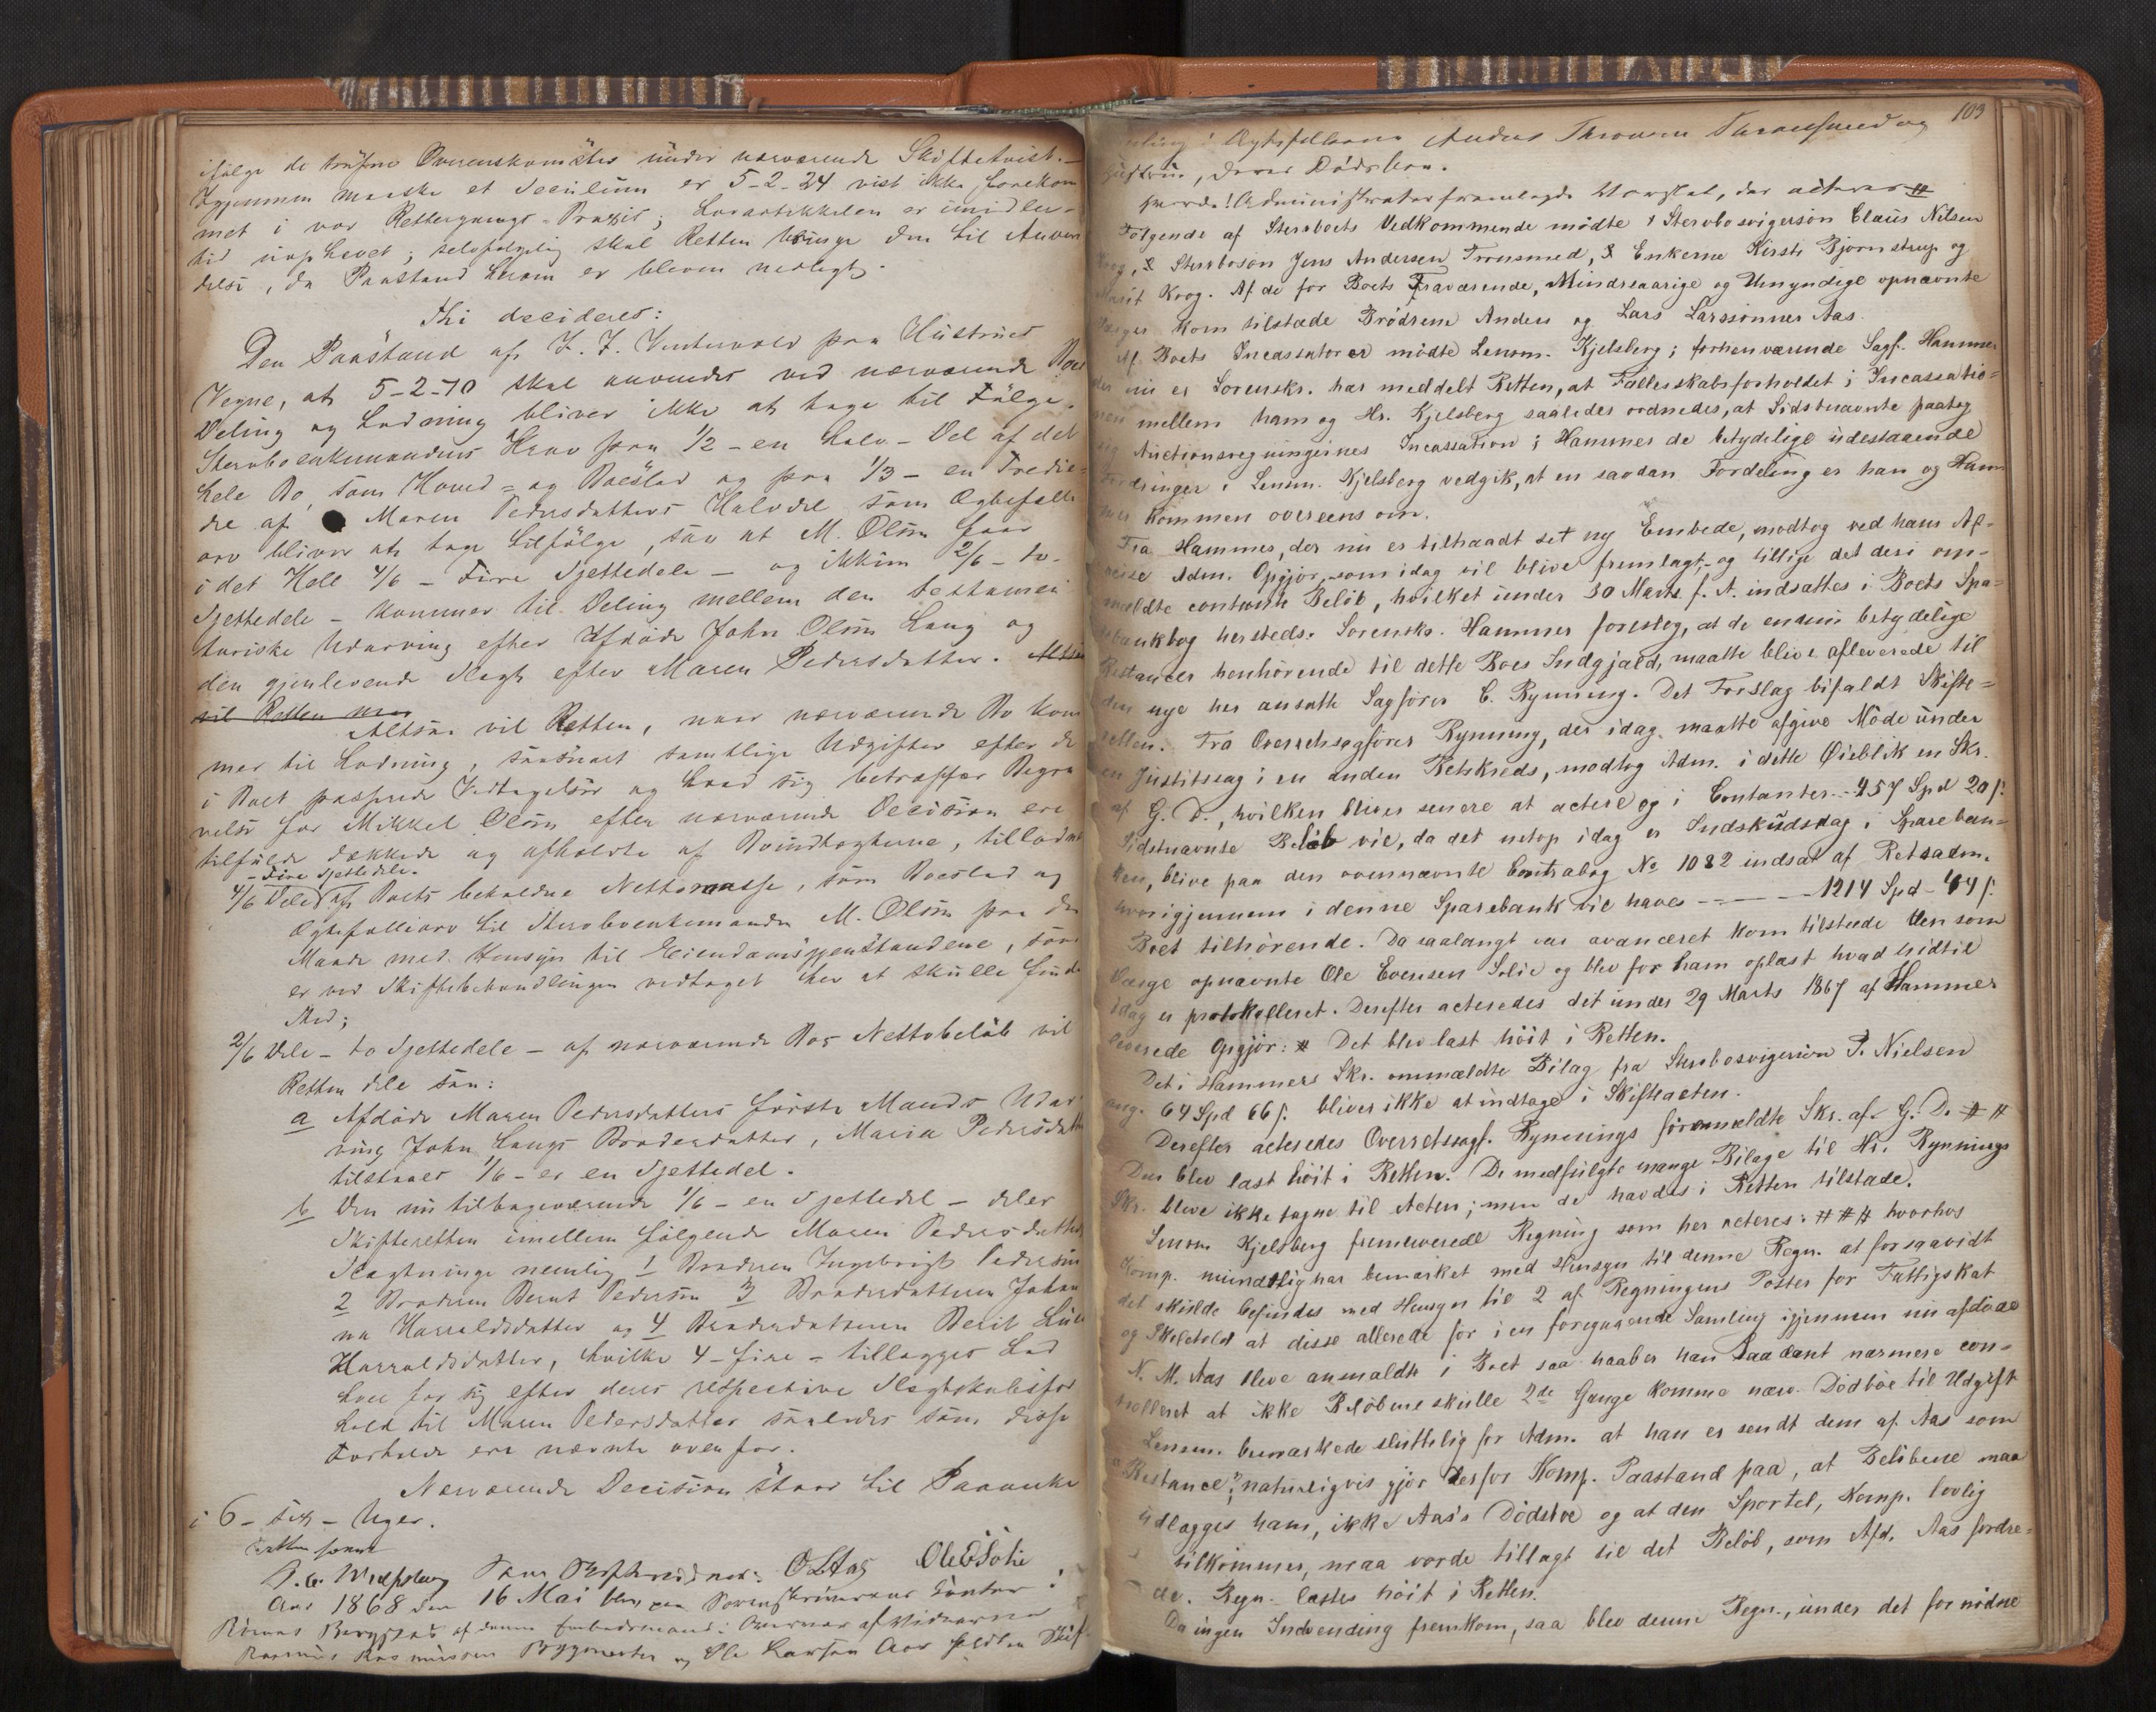 ifølge de trufne Overenskomster under nærværende Skiftetvist.—
Igjennem maaske et Seculum er 5-2-24 vist ikke forekom
met i vor Rettergangs-Praxis; Lovartikkelen er imidler-
tid uophævet; selvfølgelig skal Retten bringe den til Anven
delse, da Paastand herom er bleven nedlagt.
Thi decideres:
Den Paastand af I. I. Vintervold paa Hustrues
Vegne, at 5-2-70 skal anvendes ved nærværende Boes
Deling og Lodning bliver ikke at tage til Følge.
Sterboenkemandens Krav paa 1/2 - en halv - Del af det
hele Bo, som Hoved- og Boeslod og paa 1/3 - en Tredie-
del af Maren Pedersdatters Halvdel som Ægtefælle
arv bliver at tage tilfølge, saa at M. Olsen faar
i det Hele 4/6 - Fire Sjettedele - og ikkun 2/6 - to-
Sjettedele - kommer til Deling mellem den testamen
tariske Udarving efter Afdøde John Olsen Haug og
den gjenlevende Slægt efter Maren Pedersdatter. Altsaa
vil Retten naar
Altsaa vil Retten, naar nærværende Bo kom
mer til Lodning, saasnart samtlige Udgifter efter de
i Boet passerede Vedtagelser og hvad sig betræffer Begra
velse for Mikkel Olsen efter nærværende Decision ere
tilfulde dækkede og afholdte af Boindtægterne, tillodde
- Fire Sjettedele.
4/6 Dele af Boets beholdne Nettomasse, som Boeslod og
Ægtefællearv til Sterboenkemanden M. Olsen paa den
Maade med Hensyn til Eiendomsgjenstandene, som
er ved Skiftebehandlingen vedtaget her at skulle finde
Sted;
2/6 Dele - to Sjettedele - af nærværende Boes Nettobeløb vil
Retten dele saa:
a Afdøde Maren Pedersdatters første Mands Udar
ving John Haugs Broderdatter, Maria Pedersdatter
tilstaaes 1/6 - er en Sjettedel.
b Den nu tilbageværende 1/6 - en Sjettedel - deler
Skifteretten imellem følgende Maren Pedersdatters
Slægtninge nemlig 1 Broderen Ingebrigt Pedersen
2 Broderen Bernt Pedersen 3 Broderdatteren Johan
na Harraldsdatter og 4 Broderdatteren Berit
Harraldsdatter, hvilke 4 - fire - tillægges Lod
hver for sig efter deres respective Slægtskabsfor
hold til Maren Pedersdatter saaledes som disse
Forholde ere nævnte ovenfor.
Nærværende Decision staar til Paaanke
i 6 - sex - Uger.
Retten sluttet
Som Skifteretsvidner: O L Aas Ole E Solie
Aar 1868 den 16 Mai blev paa Sorenskriverens Contor i
Røraas Bergstad af denne Embedsmand; Overvær af Vidnerne
Rasmus Rasmussen Byggmester og Ole Larsen Aas holdtes Skif-
103
Ægtefolkene Anders Thronsen Tuvansmed og
Hustrue, deres Dødsboe.
Administrator fremlagde Storslat, der acteres #
Følgende af Sterboets Vedkommende mødte: Sterbosvigersøn Claus Nilsen
Krog, & Sterbosøn Jens Andersen Tronsmed, & Enkerne Kirsti Bjørnstrup og
Marit Krog. Af de for Boets Fraværende, Mindreaarige og Umyndige opnævnte
Værger kom tilstæde Brødrene Anders og Lars Larssønner Aas.
Af Boets Incassatorer mødte Lensm. Kjelsberg; forhenværende Sagf. Hammer
der nu er Sorenskr. har meddelt Retten, at Fællesskabsforholdet i Incassatio-
nen mellem ham og Hr. Kjelsberg saaledes ordnedes, at Sidstnævnte paatog
sig Auctionsregningernes Incassation; Hammer de betydelige udestaaende
Fordringer. Lensm. Kjelsberg vedgik, at en saadan Fordeling er han og Ham
mer kommen overeens om.
Fra Hammer, der nu er tiltraadt set ny Embede, modtog ved hans Af-
reise Adm. Opgjør, som idag vil blive fremlagt, og tillige det deri om-
meldte contante Beløb, hvilket under 30 Marts f. A. indsattes i Boets Spa-
rebankbog hersteds. Sorenskr. Hammer foreslog, at de endnu betydelige
Restancer henhørende til dette Boes Indgjæld, maatte blive afleverede til
den nye her ansatte Sagfører C. Rynning. Det Forslag bifaldt Skifte-
retten. Fra Overretssagfører Rynning, der idag maatte afgive Møde under
en Justitssag i en anden Retskreds, modtog Adm. i dette Øieblik en Skr.
af G. D., hvilken bliver senere at actere og i Contanter - 457 Spd 20 s.
Sidstnævnte Beløb vil, da det netop idag er Indskudsdag i Spareban-
ken, blive paa den ovennævnte Contrabog No 1082 indsat af Retsadm.
hvorigjennem i denne Sparebank vil haves - - - 1214 Spd - 44 s.
Boet tilhørende. Da saalangt var avanceret kom tilstede den som
Værge opnævnte Ole Evensen Solie og blev for ham oplæst hvad hidtil
idag er protokolleret. Derefter acteredes det under 29 Marts 1867 af Hammer
leverede Opgjør: # Det blev læst høit i Retten.
Det i Hammers Skr. ommældte Bilag fra Sterbosvigersøn P. Nielsen
ang. 64 Spd 66 s. bliver ikke at indtage i Skifteacten.
Derefter acteredes Overretssagf. Rynnings formeldte Skr. af G. D. # #
Den blev læst høit i Retten. De medfulgte mange Bilage til Hr. Rynnings
Skr. bleve ikke tagne til Acten; men de havdes i Retten tilstæde.
Lensm Kjelsberg fremleverede Regning som her acteres: # # # hvorhos
Komp. mundtlig har bemærket med Hensyn til denne Regn. at forsaavidt
det skulde befindes med Hensyn til 2 af Regningens Poster for Fattigskat
og Skolehold at disse allerede før i en foregaaende Samling igjennem nu afdøde
N. M. Aas bleve anmældte i Boet saa haaber han saadant nærmere con-
trolleret at ikke Beløbene skulle 2de Gange komme nærv. Dødboe til Udgift
Lensm. bemærkede sluttelig for Adm. at han er sendt dem af Aas som
"Restance", naturligvis gjør derfor Komp. Paastand paa, at Beløbene maa
udlægges ham, ikke Aas's Dødsboe og at den Sportel, Komp. lovlig
tilkommer, maa vorde tillagt til det Beløb, som Afd. Aas fordre-
de. Regn. læstes høit i Retten.
Da ingen Indvending fremkom, saa blev denne Regn., under det fornødne